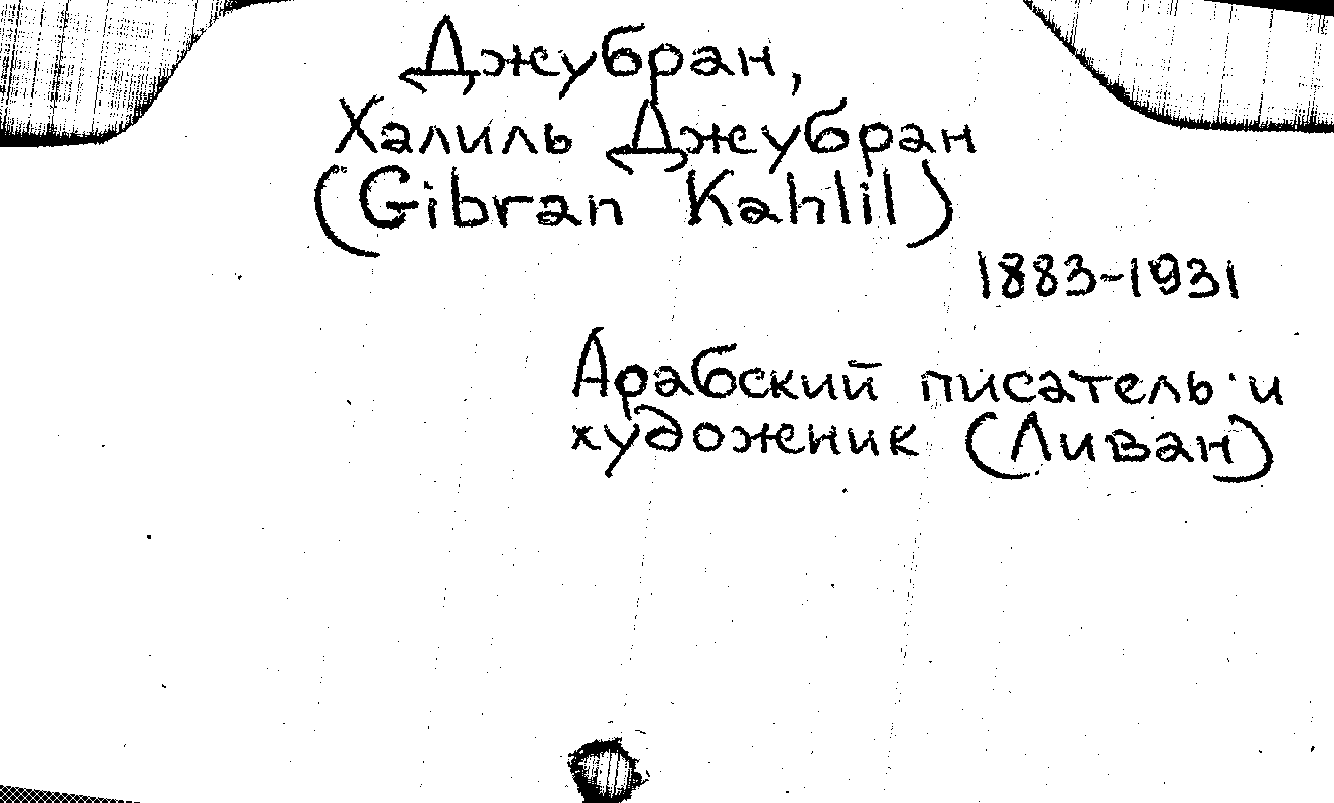 Джубран,
Халиль Джубран
(Gibran Kahlil)
1883-1931
Арабский писатель и
художник (Ливан)